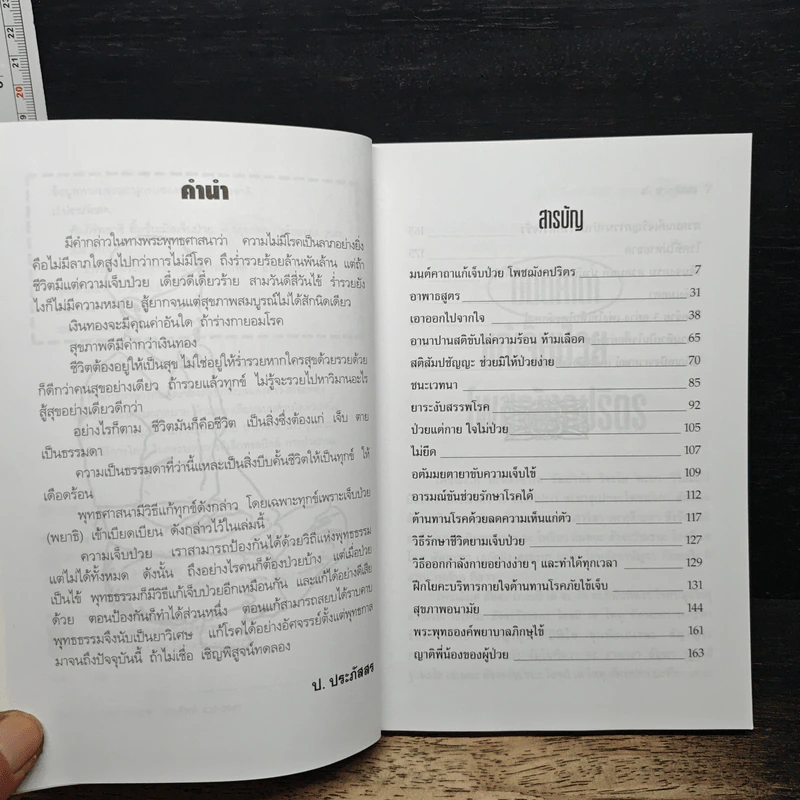 คำนำ
มีคำกล่าวในทางพระพุทธศาสนาว่า ความไม่มีโรคเป็นลาภอย่างยิ่ง
คือไม่มีลาภใดสูงไปกว่าการไม่มีโรค ถึงร่ำรวยร้อยล้านพันล้าน แต่ถ้า
ชีวิตมีแต่ความเจ็บป่วย เดี๋ยวดีเดี๋ยวร้าย สามวันดีสี่วันไข้ ร่ำรวยยัง
ไงก็ไม่มีความหมาย สู้ยากจนแต่สุขภาพสมบูรณ์ไม่ได้สักนิดเดียว
เงินทองจะมีคุณค่าอันใด ถ้าร่างกายอมโรค
สุขภาพดีมีค่ากว่าเงินทอง
ชีวิตต้องอยู่ให้เป็นสุข ไม่ใช่อยู่ให้ร่ำรวยหากใครสุขด้วยรวยด้วย
ก็ดีกว่าคนสุขอย่างเดียว ถ้ารวยแล้วทุกข์ ไม่รู้จะรวยไปหาวิมานอะไร
สู้สุขอย่างเดียวดีกว่า
อย่างไรก็ตาม ชีวิตมันก็คือชีวิต เป็นสิ่งซึ่งต้องแก่ เจ็บ ตาย
เป็นธรรมดา
ความเป็นธรรมดาที่ว่านี้แหละเป็นสิ่งบีบคั้นชีวิตให้เป็นทุกข์ ให้
เดือดร้อน
พุทธศาสนามีวิธีแก้ทุกข์ดังกล่าว โดยเฉพาะทุกข์เพราะเจ็บป่วย
(พยาธิ) เข้าเบียดเบียน ดังกล่าวไว้ในเล่มนี้
ความเจ็บป่วย เราสามารถป้องกันได้ด้วยวิถีแห่งพุทธธรรม
แต่ไม่ได้ทั้งหมด ดังนั้น ถึงอย่างไรคนก็ต้องป่วยบ้าง แต่เมื่อป่วย
เป็นไข้ พุทธธรรมก็มีวิธีแก้เจ็บป่วยอีกเหมือนกัน และแก้ได้อย่างดีเสีย
ด้วย ตอนป้องกันก็ทำได้ส่วนหนึ่ง ตอนแก้สามารถสยบได้ราบคาบ
พุทธธรรมจึงนับเป็นยาวิเศษ แก้โรคได้อย่างอัศจรรย์ตั้งแต่พุทธกาล
มาจนถึงปัจจุบันนี้ ถ้าไม่เชื่อ เชิญพิสูจน์ทดลอง
ป. ประภัสสร
สารบัญ
มนต์คาถาแก้เจ็บป่วย โพชฌังคปริตร 7
อาพาธสูตร 31
เอาออกไปจากใจ 38
อานาปานสติขับไล่ความร้อน ห้ามเลือด 65
สติสัมปชัญญะ ช่วยมิให้ป่วยง่าย 70
ชนะเวทนา 85
ยาระงับสรรพโรค 92
ป่วยแต่กาย ใจไม่ป่วย 105
ไม่ยึด 107
อตัมมยตายาขับความเจ็บไข้ 109
อารมณ์ขันช่วยรักษาโรคได้ 112
ต้านทานโรคด้วยลดความเห็นแก่ตัว 117
วิธีรักษาชีวิตยามเจ็บป่วย 127
วิธีออกกำลังกายอย่างง่ายๆ และทำได้ทุกเวลา 129
ฝึกโยคะบริหารกายใจต้านทานโรคภัยไข้เจ็บ 131
สุขภาพอนามัย 144
พระพุทธองค์พยาบาลภิกษุไข้ 161
ญาติพี่น้องของผู้ป่วย 163